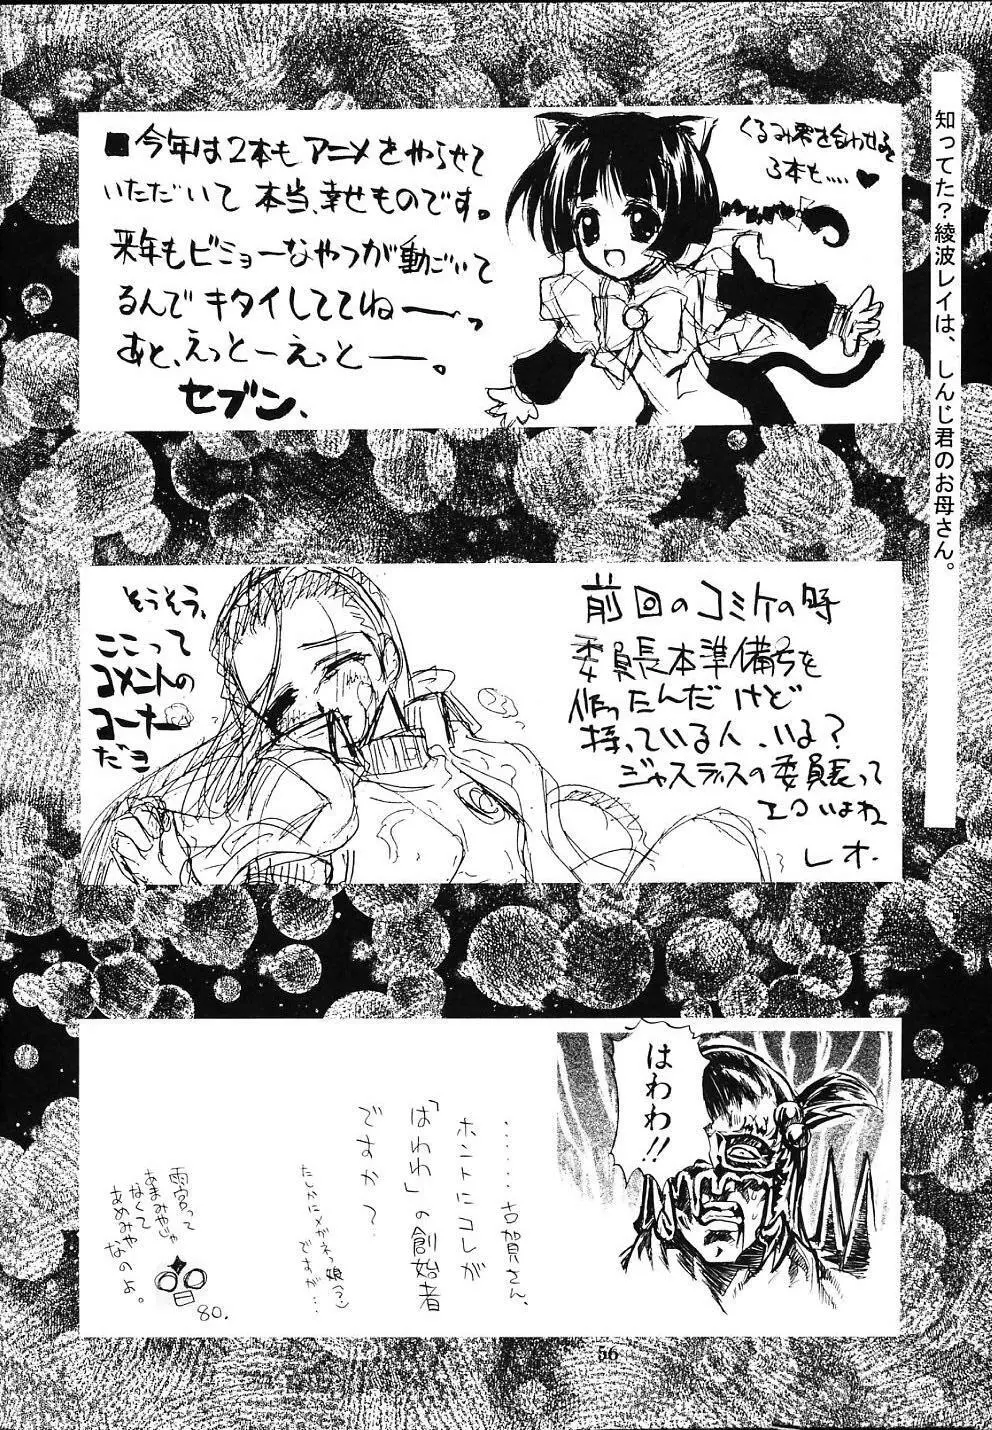 知ってた？綾波レイは、しんじ君のお母さん。
■今年は2本もアニメをやらせて
いただいて本当、幸せものです。
来年もビミョーなやつが動ごいて
るんでキタイしててねーっ
あと、えっとーえっとー。
セブン、
くるみ
3本も....♥
前回のコミケの時
委員長本準備号を
作ったんだけど
持っている人、いる？
ジャスティスの委員長って
エロいよね
レオ.
そうそう、
ここって
コメントの
コーナー
だヨ
はわわ!!
......古賀さん、
ホントにコレが
「はわわ」の創始者
ですか？
たしかにメガネっ娘(？)
ですが…
雨宮って
あまみやじゃ
なくて
あめみや
なのよ。
80.
56